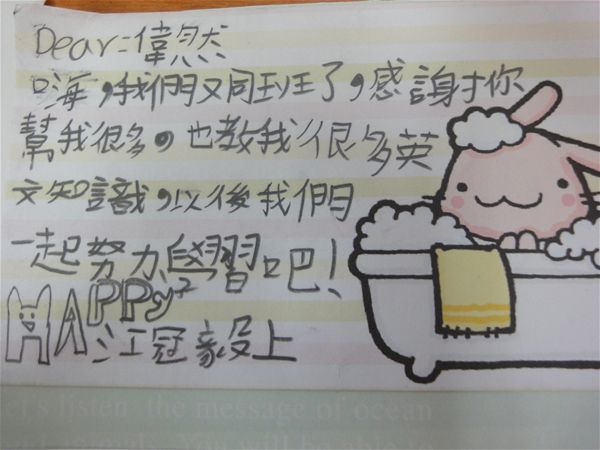 Dear=偉然
嗨,我們又同班了,感謝你
幫我很多,也教我很多英
文知識,以後我們
一起努力學習吧!
HAPPY²
江冠毅上
let's listen the message of ocean
You will be able to